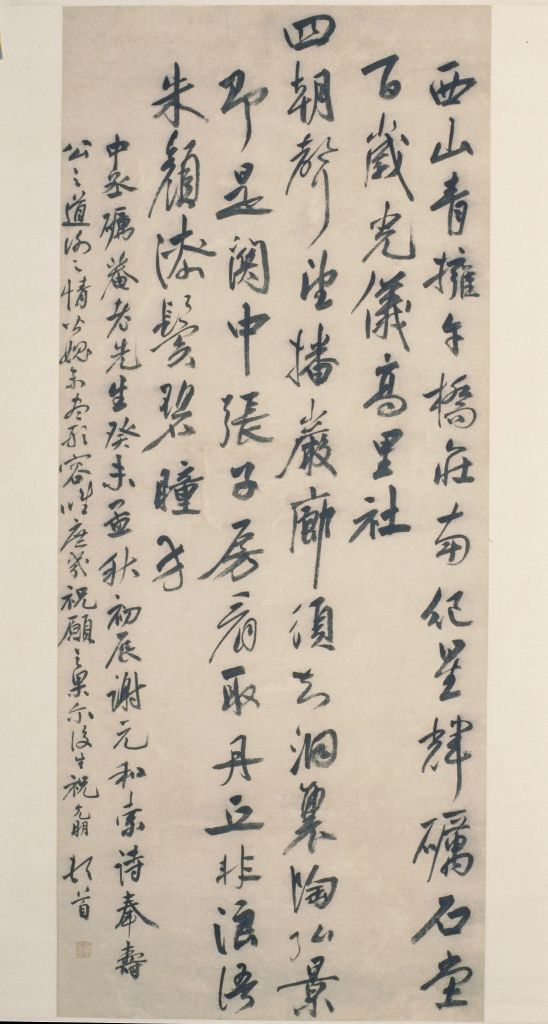 西山青擁午橋莊南紀星輝礪石堂
百歲光儀高里社
四朝聲望播巖廊須知洞裏陶弘景
即是關中張子房看取丹丘非浪語
朱顏漆鬢碧瞳方
中丞礪菴老先生癸未孟秋初辰謝元和索詩奉壽
公之道之情媿未盡形容惟庶幾祝願之果尔後生祝允明頓首